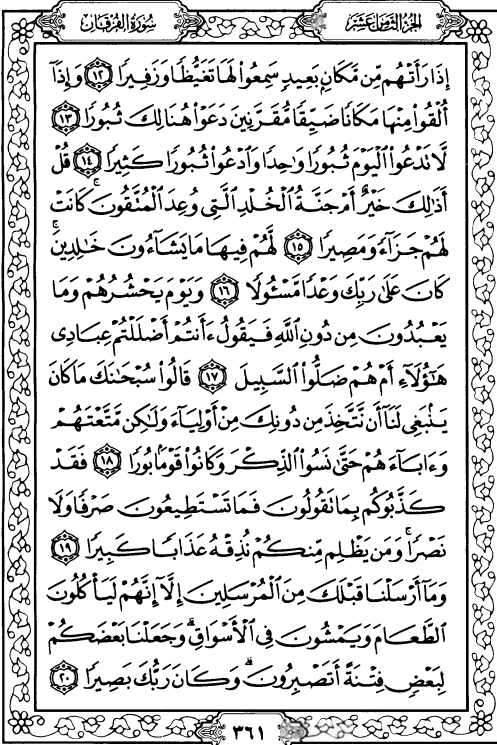 سُورَةُ الْفُرْقَانِ
الجُزْءُ الثَّامِنَ عَشَرَ
إِذَا رَأَتْهُم مِّن مَّكَانٍ بَعِيدٍ سَمِعُوا۟ لَهَا تَغَيُّظًا وَزَفِيرًا ۝١٢ وَإِذَآ
أُلْقُوا۟ مِنْهَا مَكَانًا ضَيِّقًا مُّقَرَّنِينَ دَعَوْا۟ هُنَالِكَ ثُبُورًا ۝١٣
لَّا تَدْعُوا۟ الْيَوْمَ ثُبُورًا وَٰحِدًا وَادْعُوا۟ ثُبُورًا كَثِيرًا ۝١٤ قُلْ
أَذَٰلِكَ خَيْرٌ أَمْ جَنَّةُ الْخُلْدِ الَّتِى وُعِدَ الْمُتَّقُونَ ۚ كَانَتْ
لَهُمْ جَزَآءً وَمَصِيرًا ۝١٥ لَّهُمْ فِيهَا مَا يَشَآءُونَ خَٰلِدِينَ ۚ
كَانَ عَلَىٰ رَبِّكَ وَعْدًا مَّسْـُٔولًا ۝١٦ وَيَوْمَ يَحْشُرُهُمْ وَمَا
يَعْبُدُونَ مِن دُونِ اللَّهِ فَيَقُولُ ءَأَنتُمْ أَضْلَلْتُمْ عِبَادِى
هَٰٓؤُلَآءِ أَمْ هُمْ ضَلُّوا۟ السَّبِيلَ ۝١٧ قَالُوا۟ سُبْحَٰنَكَ مَا كَانَ
يَنۢبَغِى لَنَآ أَن نَّتَّخِذَ مِن دُونِكَ مِنْ أَوْلِيَآءَ وَلَٰكِن مَّتَّعْتَهُمْ
وَءَابَآءَهُمْ حَتَّىٰ نَسُوا۟ الذِّكْرَ وَكَانُوا۟ قَوْمًۢا بُورًا ۝١٨ فَقَدْ
كَذَّبُوكُم بِمَا تَقُولُونَ فَمَا تَسْتَطِيعُونَ صَرْفًا وَلَا
نَصْرًا ۚ وَمَن يَظْلِم مِّنكُمْ نُذِقْهُ عَذَابًا كَبِيرًا ۝١٩
وَمَآ أَرْسَلْنَا قَبْلَكَ مِنَ الْمُرْسَلِينَ إِلَّآ إِنَّهُمْ لَيَأْكُلُونَ
الطَّعَامَ وَيَمْشُونَ فِى الْأَسْوَاقِ ۗ وَجَعَلْنَا بَعْضَكُمْ
لِبَعْضٍ فِتْنَةً أَتَصْبِرُونَ ۗ وَكَانَ رَبُّكَ بَصِيرًا ۝٢٠
٣٦١